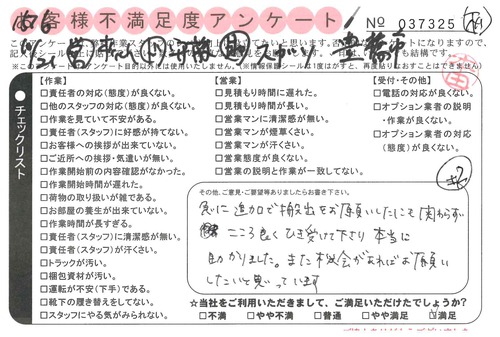 お客様不満足度アンケート
No 037325
豊橋市
※このアンケートがアンケート目的以外は使用いたしません。
チェックリスト
【作業】
□責任者の対応(態度)が良くない。
□他のスタッフの対応(態度)が良くない。
□作業を見ていて不安がある。
□責任者(スタッフ)に好感が持てない。
□お客様への挨拶が出来ていない。
□ご近所への挨拶・気遣いが無い。
□作業開始前の内容確認がなかった。
□作業開始時間が遅れた。
□荷物の取り扱いが雑である。
□お部屋の養生が出来ていない。
□作業時間が長すぎる。
□責任者(スタッフ)に清潔感が無い。
□責任者(スタッフ)が汗くさい。
□トラックが汚い。
□梱包資材が汚い。
□運転が不安(下手)である。
□靴下の履き替えをしてない。
□スタッフにやる気がみられない。
【営業】
□見積もり時間に遅れた。
□見積もり時間が長い。
□営業マンに清潔感が無い。
□営業マンが煙草くさい。
□営業マンが汗くさい。
□営業態度が良くない。
□営業の説明と作業が一致してない。
【受付・その他】
□電話の対応が良くない。
□オプション業者の説明
・作業が良くない。
□オプション業者の対応
(態度)が良くない。
その他、ご意見・ご要望等ありましたらお書き下さい。
急に追加で搬出をお願いしたにも関わらず
こころ良くひき受けて下さり本当に
助かりました。また機会があればお願い
したいと思っています
☆当社をご利用いただきまして、ご満足いただけたでしょうか?
□不満 □やや不満 □普通 □やや満足 ☑満足